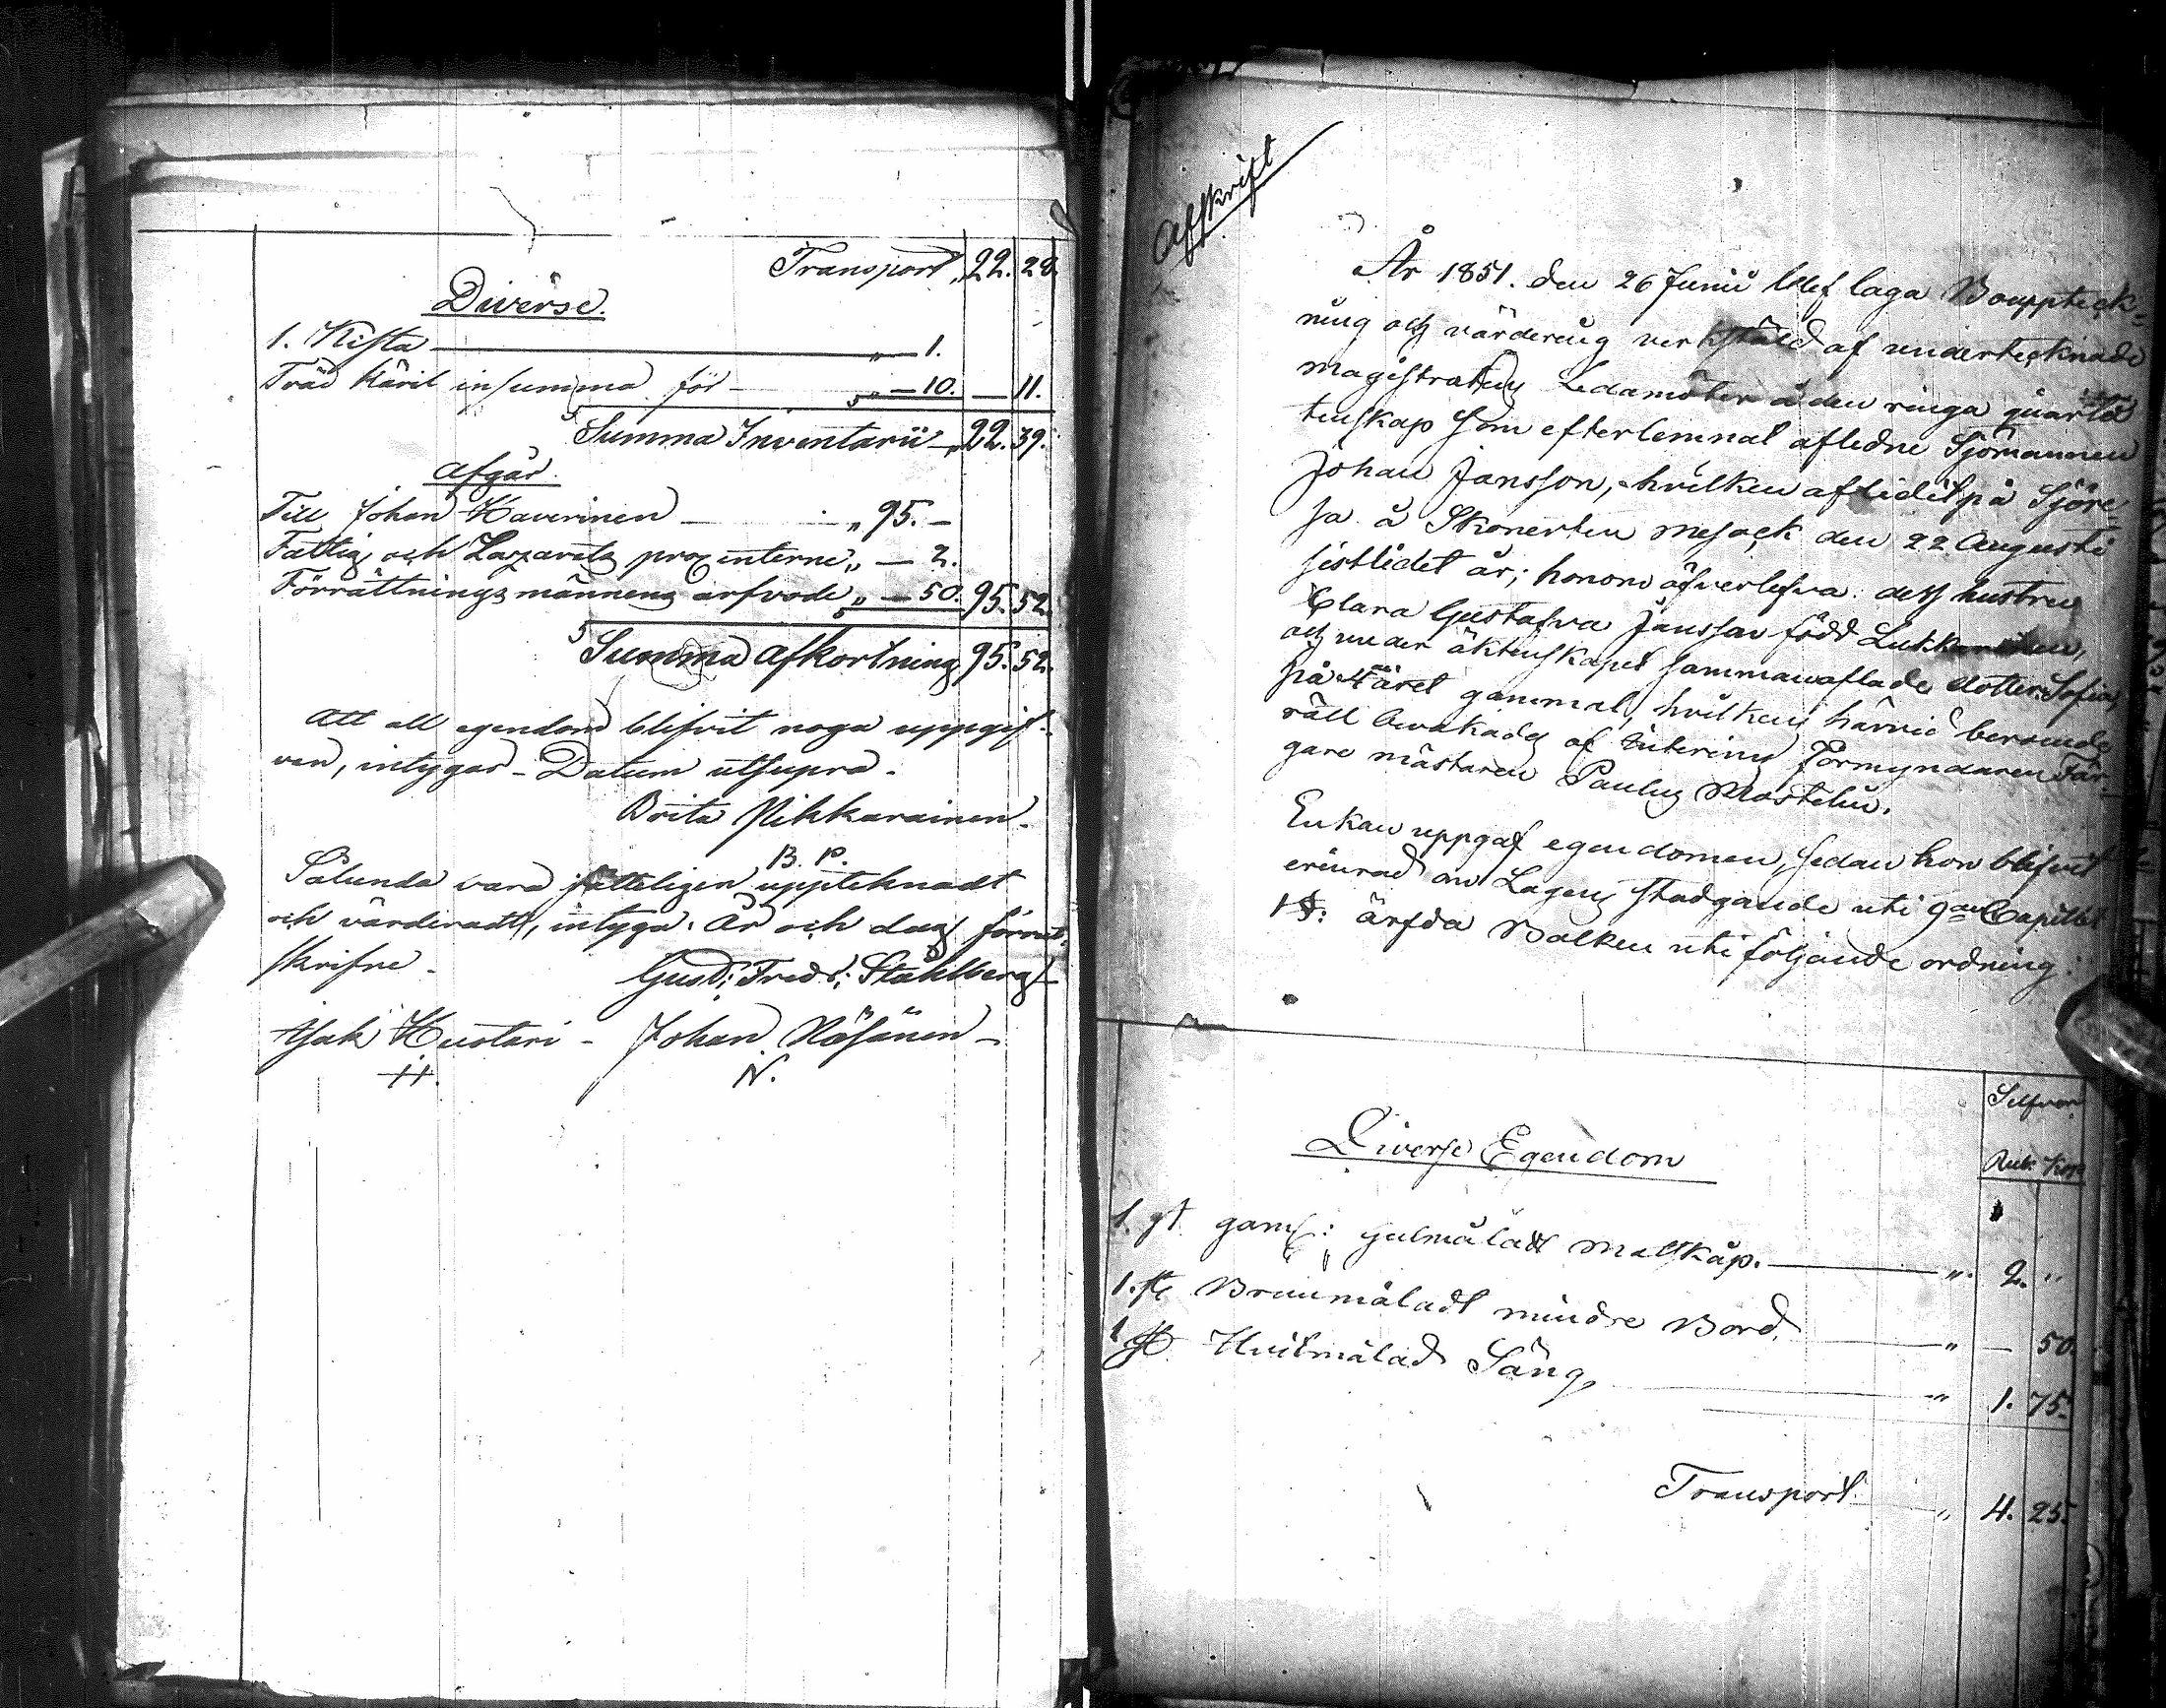 Transport „ 22. 28.
Diverse.
1. Kista — „ — 1.
Träd Käril in summa för — „ — 10. — 11.
Summa Inventarii — „ 22. 39.
Afgår.
Till Johan Haverinen — „ 95. —
Fattig och Lazaretts procenterne „ — 2.
Förrättningsmännens arfvode „ — 50. 95. 52.
Summa Afkortning 95. 52.
Att all egendom blifvit noga uppgif-
ven, intygar – Datum utsupra.
Brita Pikkarainen.
B. P.
Sålunda vara jätteligen uppteknadt
och värderadt, intyga. År och dag förut-
skrifne. Gust: Fredr: Ståhlberg
Isak Huotari – Johan Näsänen –
H. N.
Afskrift
År 1851. den 26 Junii blef laga Bouppteck-
ning och värdering verkstäld af undertecknade
magistratens Ledamöter å den ringa quarlå-
tenskap som efterlemnat afledne Sjömannen
Johan Jansson, hvilken aflidit på Sjöre-
sa å Skonerten Mesack den 22 Augusti
sistlidet år; honom öfverlefva dess hustru
Clara Gustafva Jansson född
och under äktenskapet sammanaflade dotter Sofia,
på 4 året gammal, hvilkens härvid beroende
rätt bevakades af Interims Förmyndaren Fär-
gare mästaren Paulus Mostelin.
Enkan uppgaf egendomen, sedan hon blifvit
erinrad om Lagens stadgande uti 9de Capitlet
1 §: ärfda Balken uti följande ordning:
Silfver
Rub. Kop.
Diverse Egendom
1. st. gam: gulmåladt matskåp. — „ 2. „
1. st. Brunmåladt mindre Bord. — „ — 50.
1 st. Hvitmålad Säng, — „ 1. 75.
Transport — „ 4. 25.